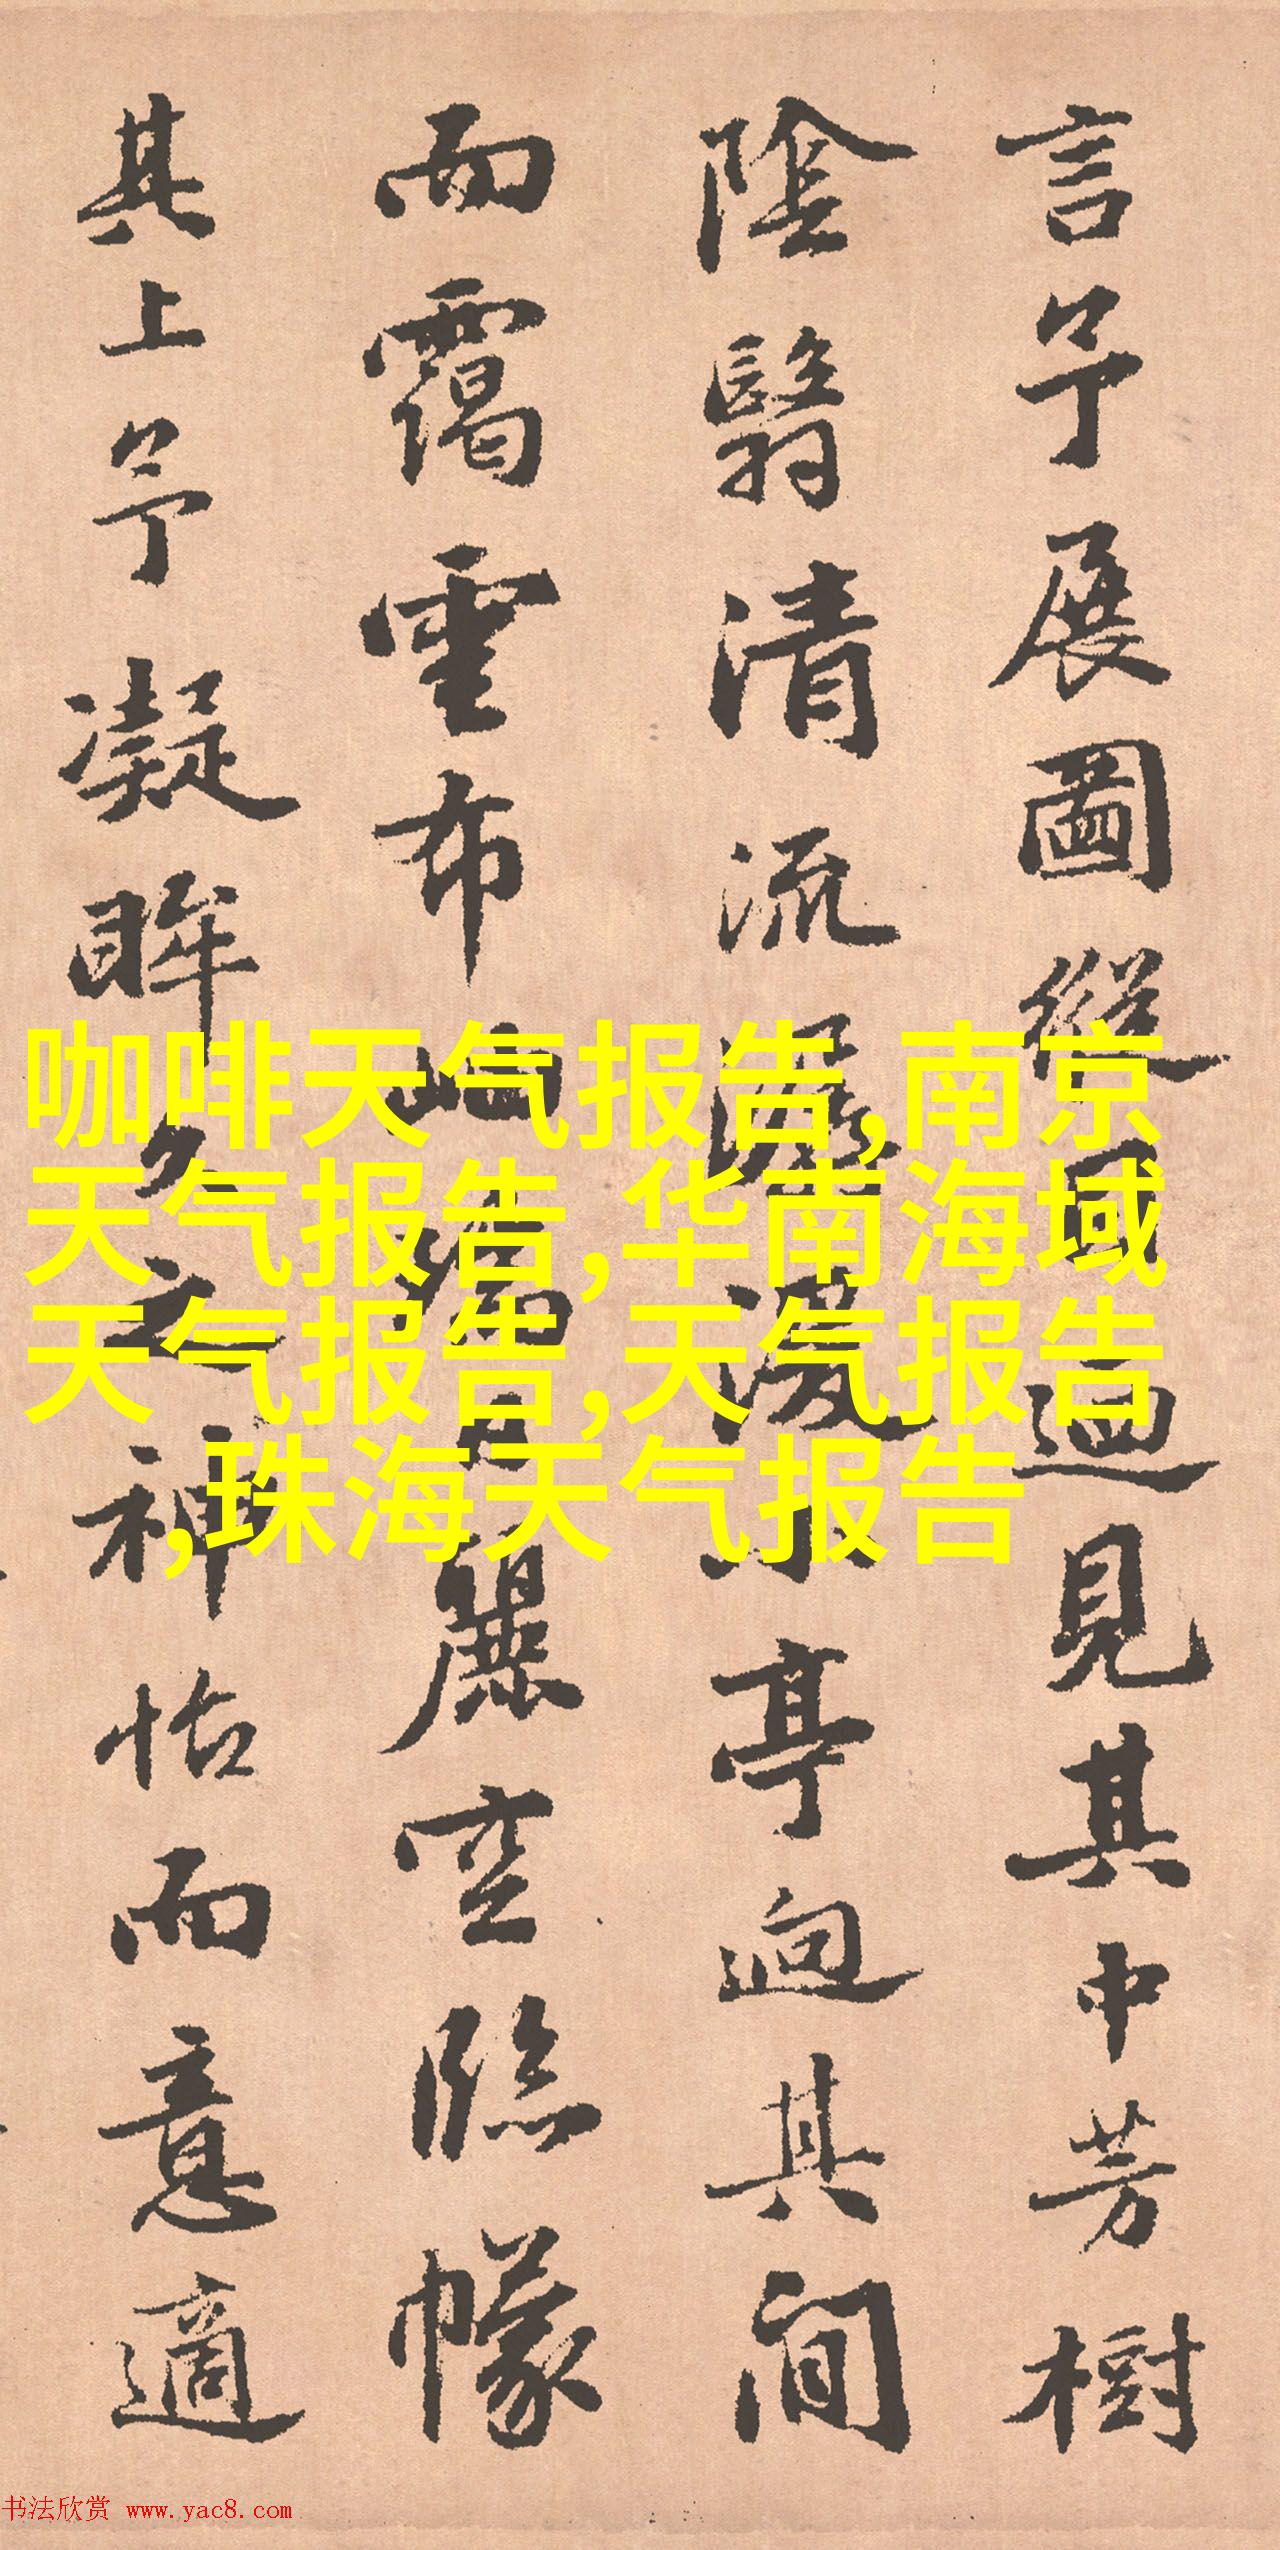 言予展圖縱迴見其中芳樹
陰翳清流潺湲亭逈其間
而靄雲布岫麗空臨幪
其上予凝眸久之神怡而意適
咖啡天气报告,南京
天气报告,华南海域
天气报告,天气报告
,珠海天气报告
书法欣赏 www.yac8.com